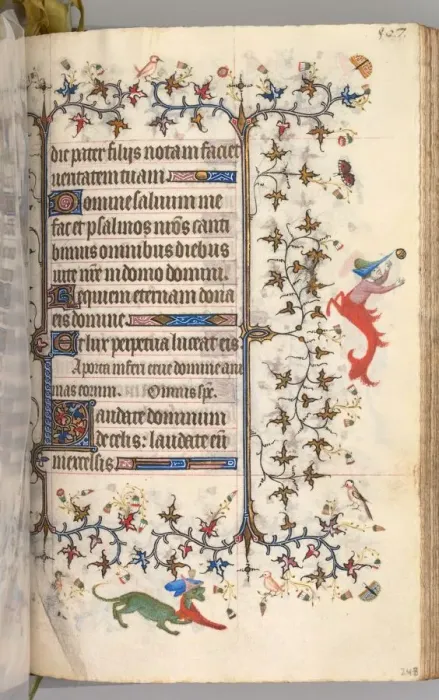 die pater filijs notam faciet
ueritatem tuam
Domine saluum me
fac et psalmos nr̃os canti
bimus omnibus diebus
uite nr̃e in domo domini.
Requiem eternam dona
eis domine
Et lux perpetua luceat eis
A porta inferi erue domine ani
mas eorum. Omnis sp̃c.
Laudate dominum
de celis: laudate eũ
in excelsis
248